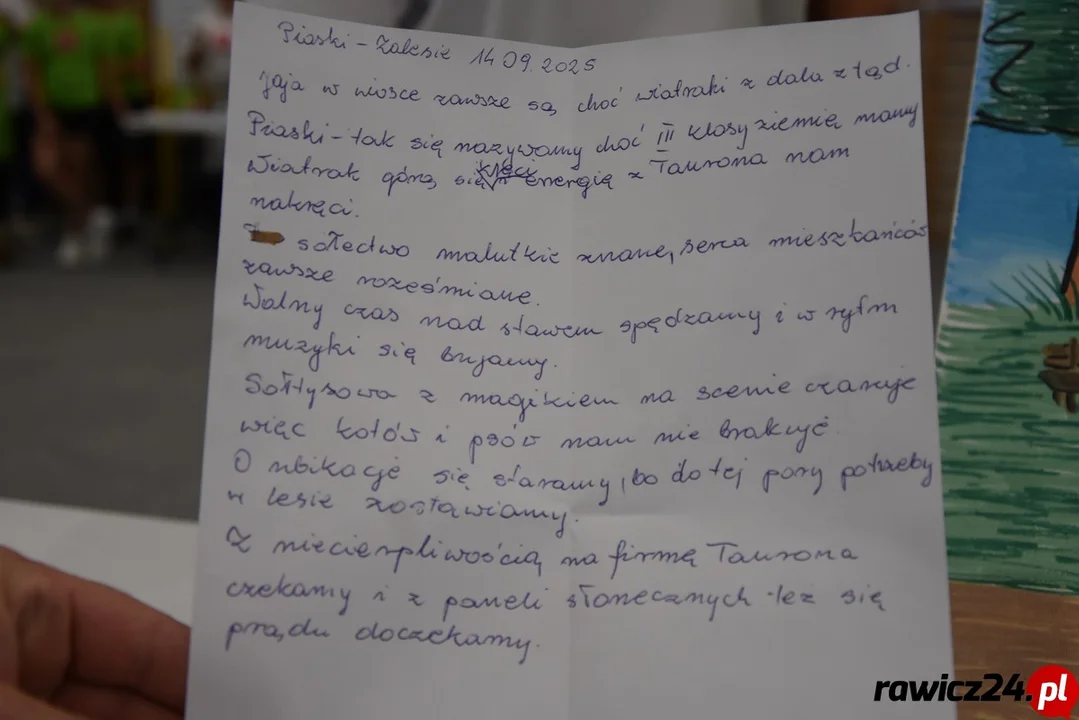 Piaski - Zalesie 14 09. 2025
Jaja w wiosce zawsze są, choć wiatraki z dala z tąd.
Piaski - tak się nazywamy choć III klasy ziemię mamy
Wiatrak górą się kręci energię z Taurona nam
nakręci.
sołectwo malutkie znane, serca mieszkańców
zawsze roześmiane.
Wolny czas nad stawem spędzamy i w rytm
muzyki się bujamy.
Sołtysowa z magikiem na scenie czaruje
więc kotów i psów nam nie brakuje
O ubikacje się staramy, bo do tej pory potrzeby
w lesie zostawiamy.
Z niecierpliwością na firmę Taurona
czekamy i z paneli słonecznych też się
prądu doczekamy.
rawicz24.pl